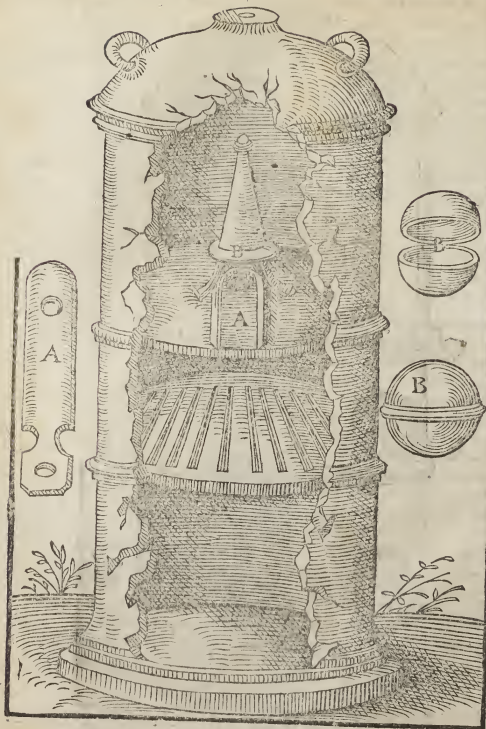 B
A
A
B